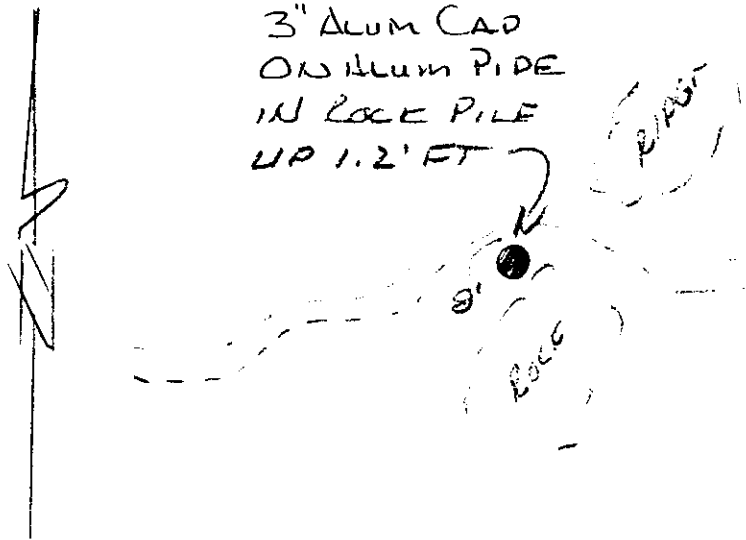 3" ALUM CAP
ON ALUM PIPE
IN ROCK PILE
UP 1.2' FT
8'
ROCK
N